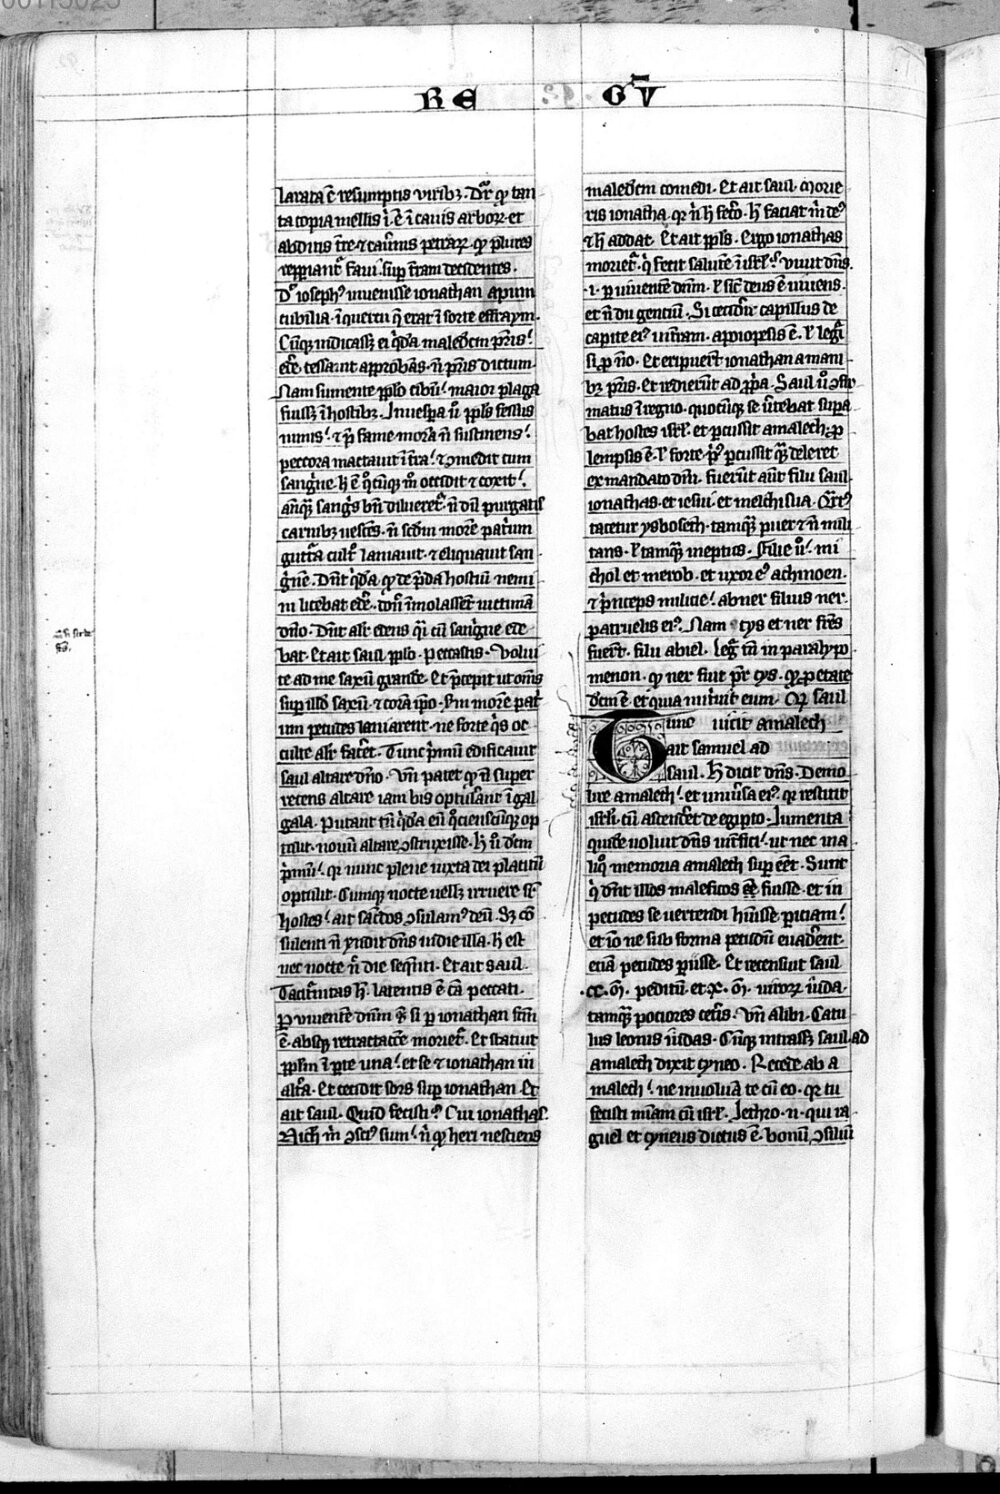 RE GV̄
larata ē resumptis viribꝫ. Dr̄ qͥ tan
ta copia mellis ī ē ī cauis arboꝝ et
abditis tr̄e ⁊ cauͥnis petraꝝ. qͥ plures
repͥiant᷑ faui. suꝑ tr̄am decidentes.
Dᵗ ioseph᷒ inuenisse ionathan apum
cubilia. ī quercu q̄ erat ī sorte effraym.
Cūqꝫ indicassꝫ ei qͥda maledc̄m pr̄is
edē cessauit approbās. n̄ pr̄is dictum.
Nam sumente ppl̄o cibū maior plaga
fuissꝫ ī hostibꝫ. In uespa ū ppl̄s fessus
nimis. ⁊ p̄ fame morā n̄ sustinens
peccora mactauit ī tr̄a. ⁊ ꝯmedit cum
sangͥne. h̄ ē qͦcūqꝫ mͦ occidit ⁊ coxit
anqͣꝫ sangͥs bn̄ dilueret᷑. n̄ dū purgatis
carnibꝫ uescēs. n̄ scdm morē patrum
guttͣa cultͦ laniauit. ⁊ eliquauit san
gͥnē. Dn̄t qͥda qͥ de p̄da hostiū nemi
ni licebat edē. don̄ īmolassēt uictimā
dn̄o. Dn̄t alr̄ edens qͥ cū sangͥne ede
bat. Et ait saul ppl̄o. Peccastis. Volui
te ad me saxū grande. Et p̄cepit ut om̄s
suꝑ illd̄ saxū ⁊ corā ip̄o. scdm morē pat
rum pecudes laniarent. ne forte qͥs oc
culte alr̄ facēt. Tunc pͥmū edificauit
saul altare dn̄o. Vn̄ patet qͥ n̄ super
recens altare iam bis optul̄ant ī gal
gala. Putant tn̄ qͥda eū qͦcienscūqꝫ op
tulit. nouū altare ꝯstruxisse. h̄ ū dc̄m
pͥmū. qr nunc plene iuxta dei placitū
optulit. Cumqꝫ nocte uellꝫ irruere sͥ
hostes. ait sac̄dos ꝯsulam᷒ deū. Sꝫ cō
sulenti n̄ r̄ndit dn̄s in die illa. h̄ est
nec nocte n̄ die seqn̄ti. Et ait Saul.
Taciͬnitas h̄. latentis ē cā peccati.
ꝑ viuentē dn̄m qͥ si ꝑ ionathan fcm̄
ē. absqꝫ retractacōe moriet᷑. Et statuit
ppl̄m ī pͣte una. et se ⁊ ionathan in
alt̄a. Et cecidit sors suꝑ ionathan. Et
ait saul. Quid fecisti? Cui ionathas.
Nich̄ m̄ ꝯsci᷒ sum. n̄ qͥ heri nesciens
maledc̄m comedi. Et ait saul. Morie
ris ionatha. qr n̄ h̄ feceͦ. h̄ faciat m̄ de᷒
⁊ h̄ addat. Et ait ppl̄s. Ergo ionathas
moriet᷑. qͥ fecit salutē ī isrl̄. viuit dn̄s.
.i. ꝑ viuentē dn̄m. l̓ sic̄ deus ē uiuens.
et n̄ du gentiū. Si cecidͥit capillus de
capite ei᷒ in tr̄am. apoiopesis ē. l̓ legͥ
si ꝓ no. Et eripuert ionathan a mani
bꝫ pr̄is. Et redierūt ad ꝓpͣa. Saul ū ꝯfir
matus ī regno. quocūqꝫ se ūtebat supͣa
bat hostes isrl̄. et ꝑcussit amalech. ꝓ
lempsis ē. l̓ forte pͥ᷒ ꝑcussit qͣꝫ deleret
ex mandato dn̄i. fuerūt aūt filii saul.
ionathas. et iesui. et melchisua. Qrt᷒
tacetur ysboseth. tamqͣꝫ puer ⁊ n̄ mili
tans. l̓ tamqͣꝫ ineptus. Filie ū. mi
chol et merob. et vxor e᷒ achinoen.
⁊ pͥnceps milicie. abner filius ner.
patruelis ei᷒. Nam cys et ner frēs
fuert. filii abiel. legͥ tn̄ in paralypo
menon. qͥ ner fuit pr̄ cys. qͥ ꝓ etate
dc̄m ē. et quia nutriuit eum. Qr saul
Tunc uicit amalech
ait samuel ad
saul. H̄ dicit dn̄s. Demo
lire amalech. et uniūsa ei᷒. qr restitit
isrl̄i. cū ascendēt de egipto. Iumenta
quidē uoluit dn̄s intͤfici. ut nec in a
liqͦ memoria amalech suꝑ eēt. Sunt
qͥ dn̄t illos maleficos eē fuisse. et in
pecudes se uertendi hūisse ꝑiciam
et iō ne sub forma pecudū euadēnt.
eciā pecudes ꝑiisse. Et recensuit saul
.cc. oͫ. peditū. et x. oͫ. uiroꝝ iuda.
tamqͣꝫ pociores cetis. Vn̄ alibi. Catu
lus leonis iudas. Cūqꝫ intrassꝫ saul ad
amalech dixit cyneo. Recede ab a
malech. ne inuoluā te cū eo. qr tu
fecisti miam cū isrl̄. Iethro .n. qui ra
guel et cyneus dictus ē. bonū ꝯsiliū